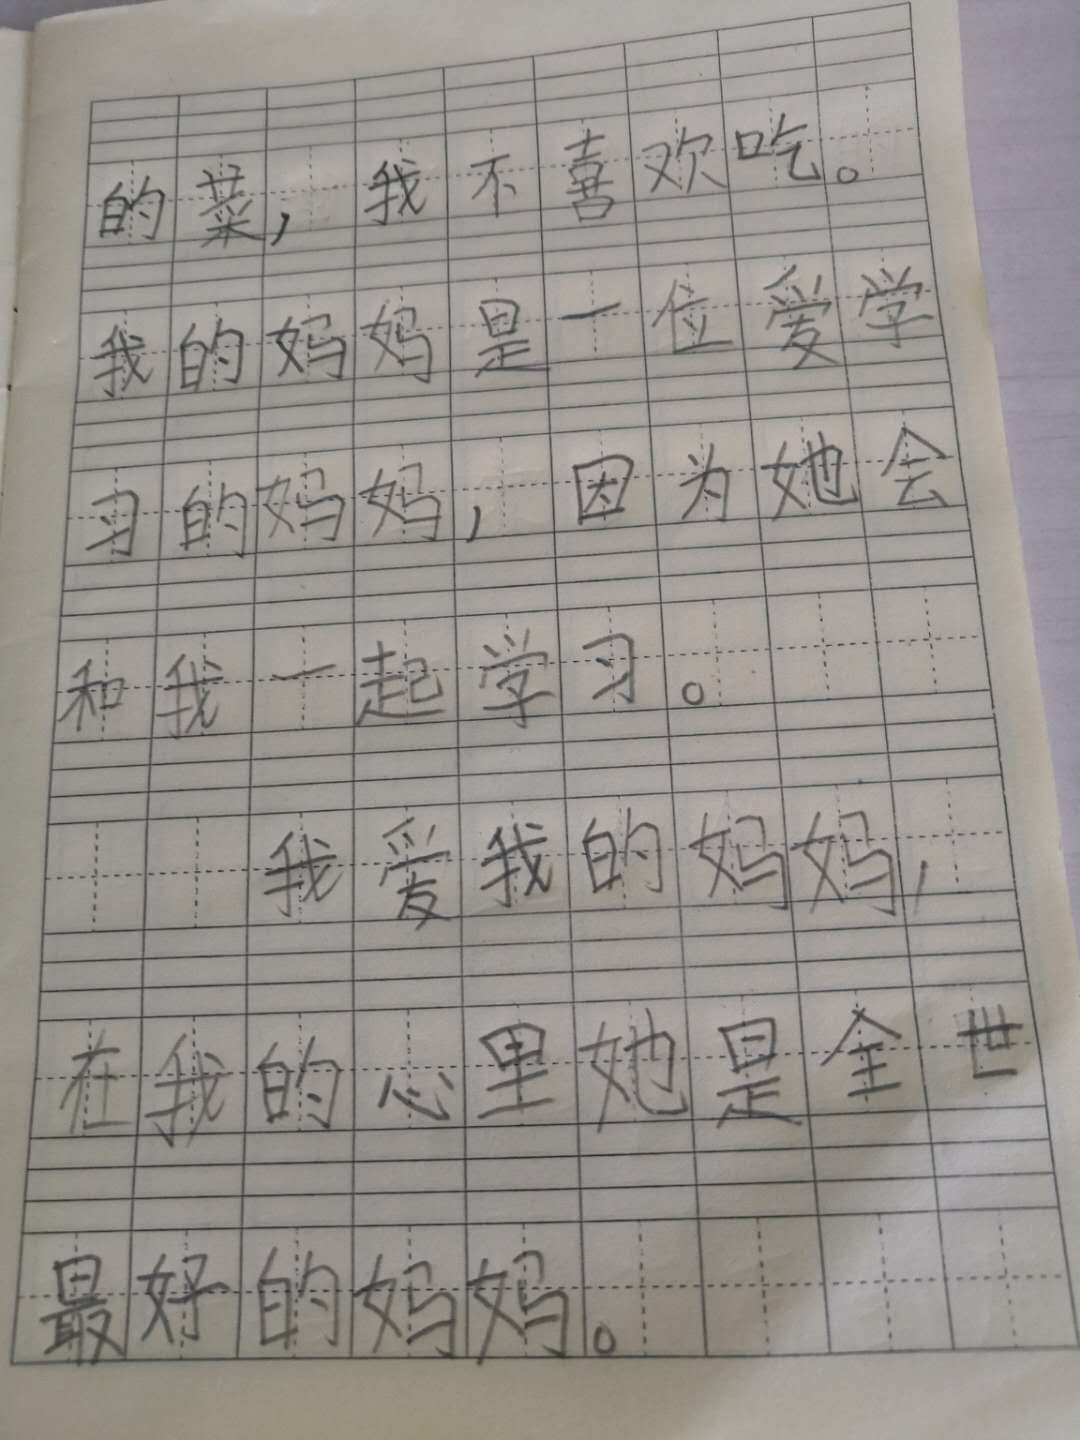 的菜，我不喜欢吃。
我的妈妈是一位爱学
习的妈妈，因为她会
和我一起学习。
我爱我的妈妈，
在我的心里她是全世
最好的妈妈。